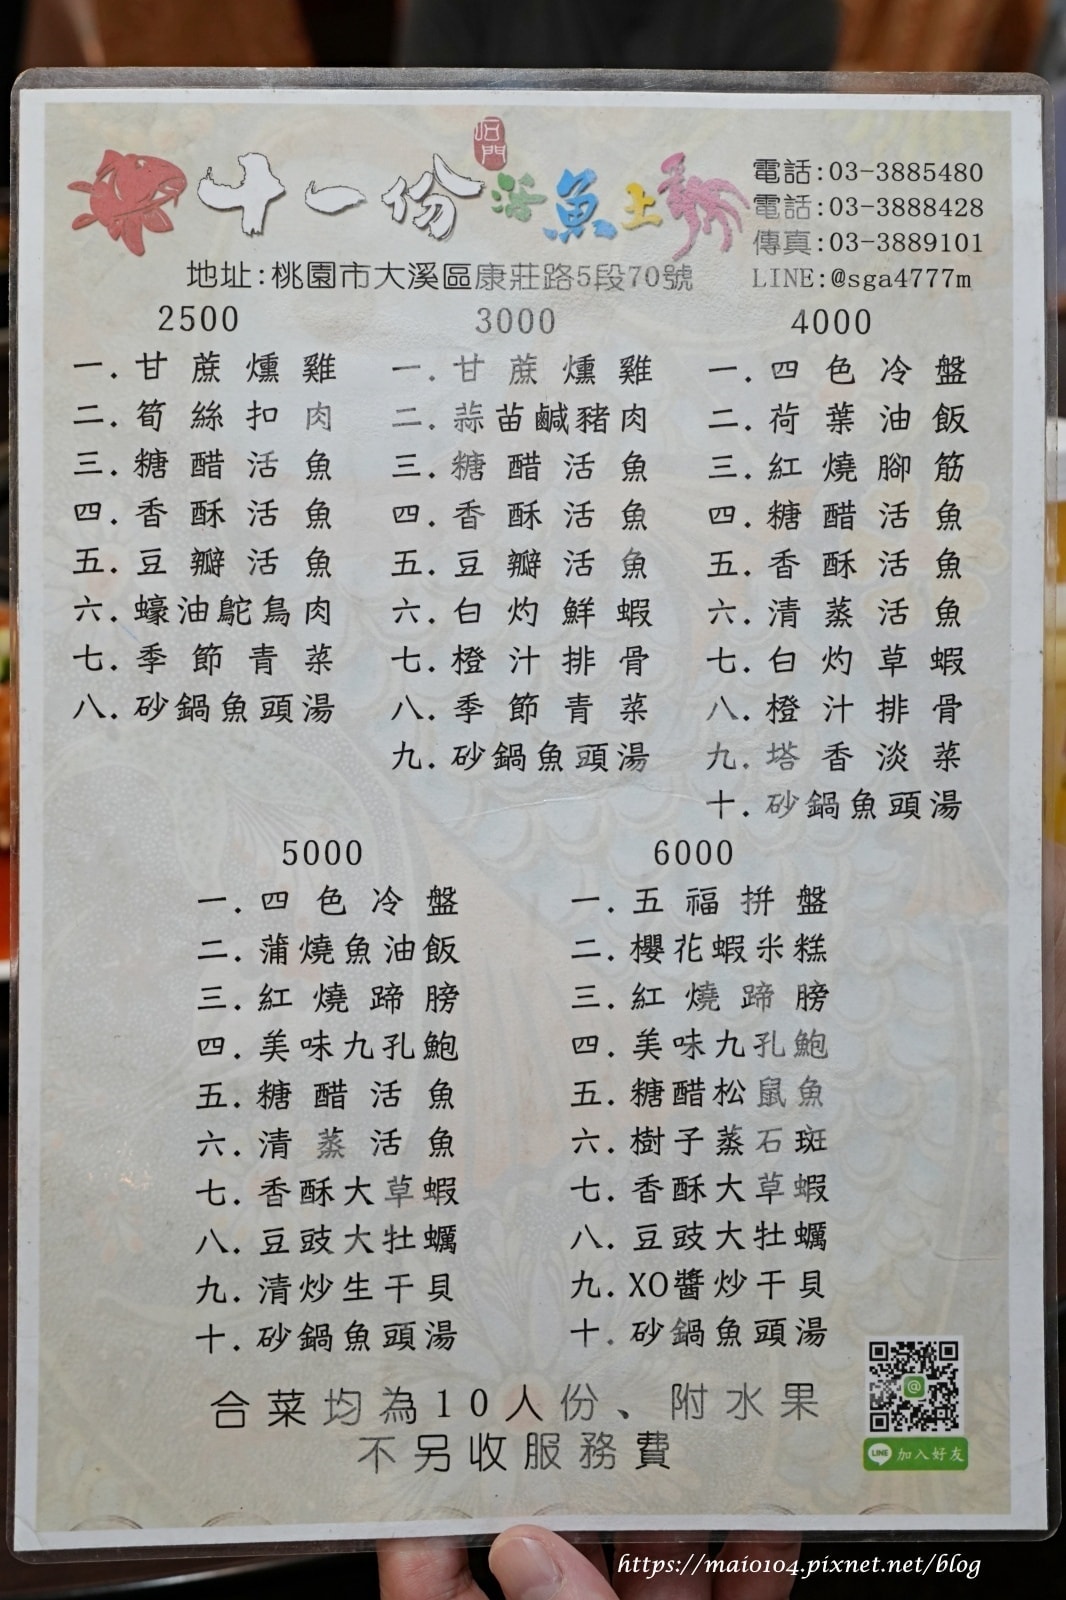 石門
十一份活魚土雞
電話:03-3885480
電話:03-3888428
傳真:03-3889101
地址:桃園市大溪區康莊路5段70號
LINE:@sga4777m
2500
一.甘蔗燻雞
二.筍絲扣肉
三.糖醋活魚
四.香酥活魚
五.豆瓣活魚
六.蠔油鴕鳥肉
七.季節青菜
八.砂鍋魚頭湯
3000
一.甘蔗燻雞
二.蒜苗鹹豬肉
三.糖醋活魚
四.香酥活魚
五.豆瓣活魚
六.白灼鮮蝦
七.橙汁排骨
八.季節青菜
九.砂鍋魚頭湯
4000
一.四色冷盤
二.荷葉油飯
三.紅燒腳筋
四.糖醋活魚
五.香酥活魚
六.清蒸活魚
七.白灼草蝦
八.橙汁排骨
九.塔香淡菜
十.砂鍋魚頭湯
5000
一.四色冷盤
二.蒲燒魚油飯
三.紅燒蹄膀
四.美味九孔鮑
五.糖醋活魚
六.清蒸活魚
七.香酥大草蝦
八.豆豉大牡蠣
九.清炒生干貝
十.砂鍋魚頭湯
6000
一.五福拼盤
二.櫻花蝦米糕
三.紅燒蹄膀
四.美味九孔鮑
五.糖醋松鼠魚
六.樹子蒸石斑
七.香酥大草蝦
八.豆豉大牡蠣
九.XO醬炒干貝
十.砂鍋魚頭湯
合菜均為10人份、附水果
不另收服務費
LINE 加入好友
https://maio104.pixnet.net/blog